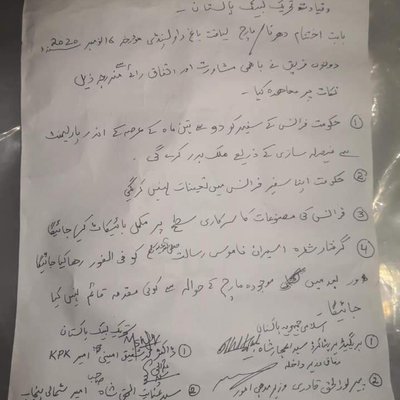 وقیادت تحریک لبیک پاکستان -
بابت اختتام دھرنا/مارچ لیاقت باغ راولپنڈی مورخہ 16 نومبر 2020
دونوں فریق نے باہمی مشاورت اور اتفاق رائے سے مندرجہ ذیل
نکات پر معاہدہ کیا -
① حکومت فرانس کے سفیر کو دو سے تین ماہ کے عرصہ کے اندر پارلیمنٹ
سے فیصلہ سازی کے ذریعے ملک بدر کرے گی
② حکومت اپنا سفیر فرانس میں تعینات نہیں کریگی
③ فرانس کی مصنوعات کا سرکاری سطح پر مکمل بائیکاٹ کیا جائیگا
④ گرفتار شدہ اسیران ناموس رسالت کو فی الفور رہا کیا جائیگا
اور بعد میں موجودہ مارچ کے حوالہ سے کوئی مقدمہ قائم نہیں کیا
جائیگا -
اسلامی جمہوریہ پاکستان
تحریک لبیک پاکستان
① بریگیڈیر ریٹائرڈ سید اعجاز شاہ
وفاقی وزیر داخلہ
① ڈاکٹر شفیق امینی امیر KPK
② پیر نورالحق قادری وزیر مذہبی امور
② سید عنایت الحق شاہ امیر شمالی پنجاب